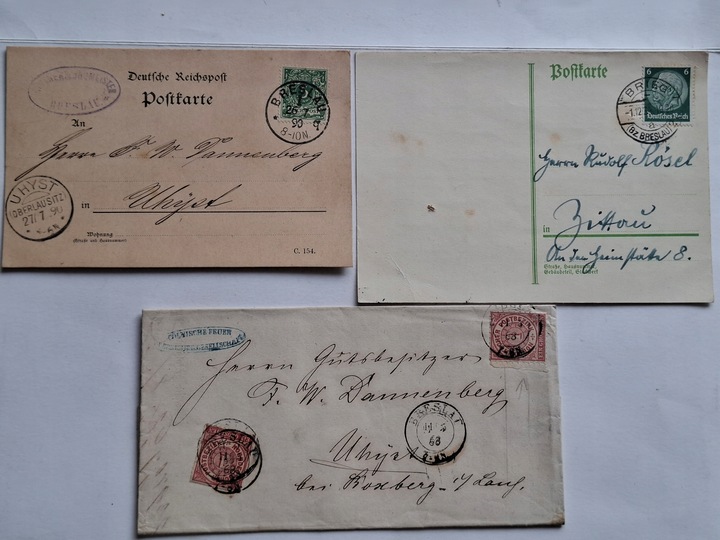 BRESLAU
Deutsche Reichspost
Postkarte
An
Herrn F. W. Dannenberg
in Uhyst
Wohnung
(Straße und Hausnummer)
C. 154.
BRESLAU
26/7
90
8-10N
UHYST
(OBERLAUSITZ)
27/7 90
Postkarte
6 6
Deutsches Reich
BRIEG
-1.12
(Bz. BRESLAU)
Herrn Rudolf Kösel
in Zittau
An der Heimstätte 8.
Straße, Hausnummer,
Gebäudeteil, Stockwerk
FEUER
Herrn Gutsbesitzer
F. W. Dannenberg
Uhyst
bei Boxberg i/ Laus.
BRESLAU
68